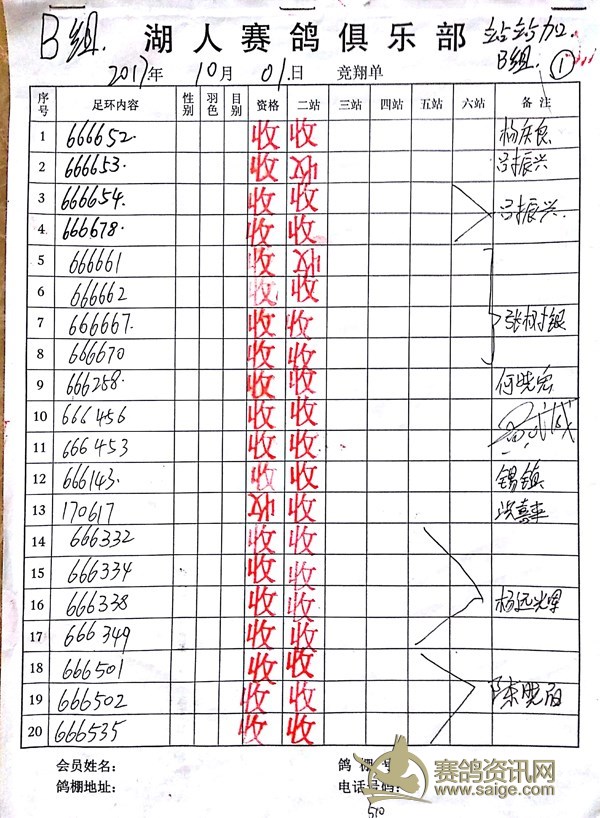 B组. 湖人赛鸽俱乐部 站站加.
B组. ①
2017年 10月 01日 竞翔单
序号 足环内容 性别 羽色 目别 资格 二站 三站 四站 五站 六站 备注
1 666652. 收 收 杨庆良
2 666653. 收 收 吕振兴
3 666654. 收 收 吕振兴.
4 666678. 收 收
5 666661 收 收
6 666662 收 收
7 666667. 收 收 张树银
8 666670 收 收
9 666258. 收 收 何晓宏
10 666456 收 收
11 666453 收 收
12 666143. 收 收 锡镇
13 170617 收 收
14 666332 收 收
15 666334 收 收
16 666338 收 收 杨远光军
17 666349 收 收
18 666501 收 收
19 666502 收 收 陈晓雨
20 666535 收 收
会员姓名: 鸽棚 号:
鸽棚地址: 电话号码:
510
赛鸽资讯网
www.saige.com